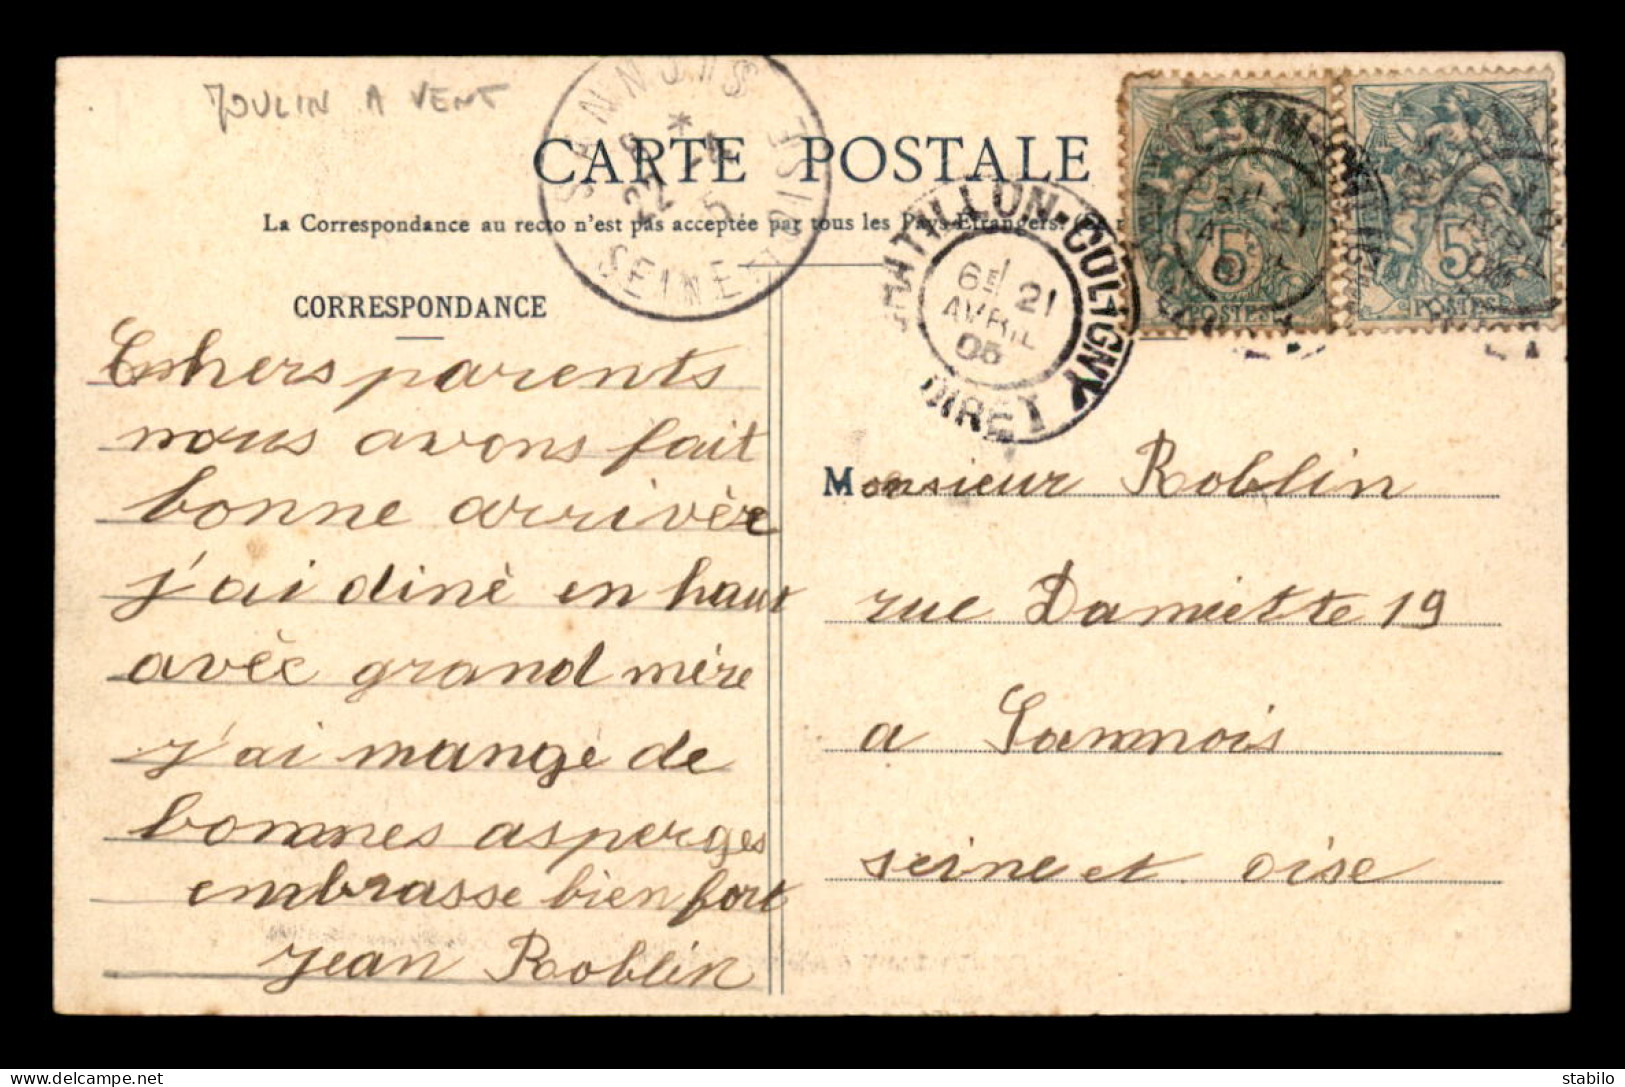 MOULIN A VENT
CARTE POSTALE
La Correspondance au recto n'est pas acceptée par tous les Pays Etrangers.
SANNOIS
22 -4
5
SEINE-ET-OISE
CHATILLON-COLIGNY
6E 21
AVRIL
05
LOIRET
5c
POSTES
5c
POSTES
CORRESPONDANCE
Chers parents
nous avons fait
bonne arrivèe
j'ai dinè en haut
avèc grand mère
j'ai mangè de
bonnes asperges
embrasse bien fort
Jean Roblin
Monsieur Roblin
rue Damiette 19
a Sannois
seine et oise
stabilo